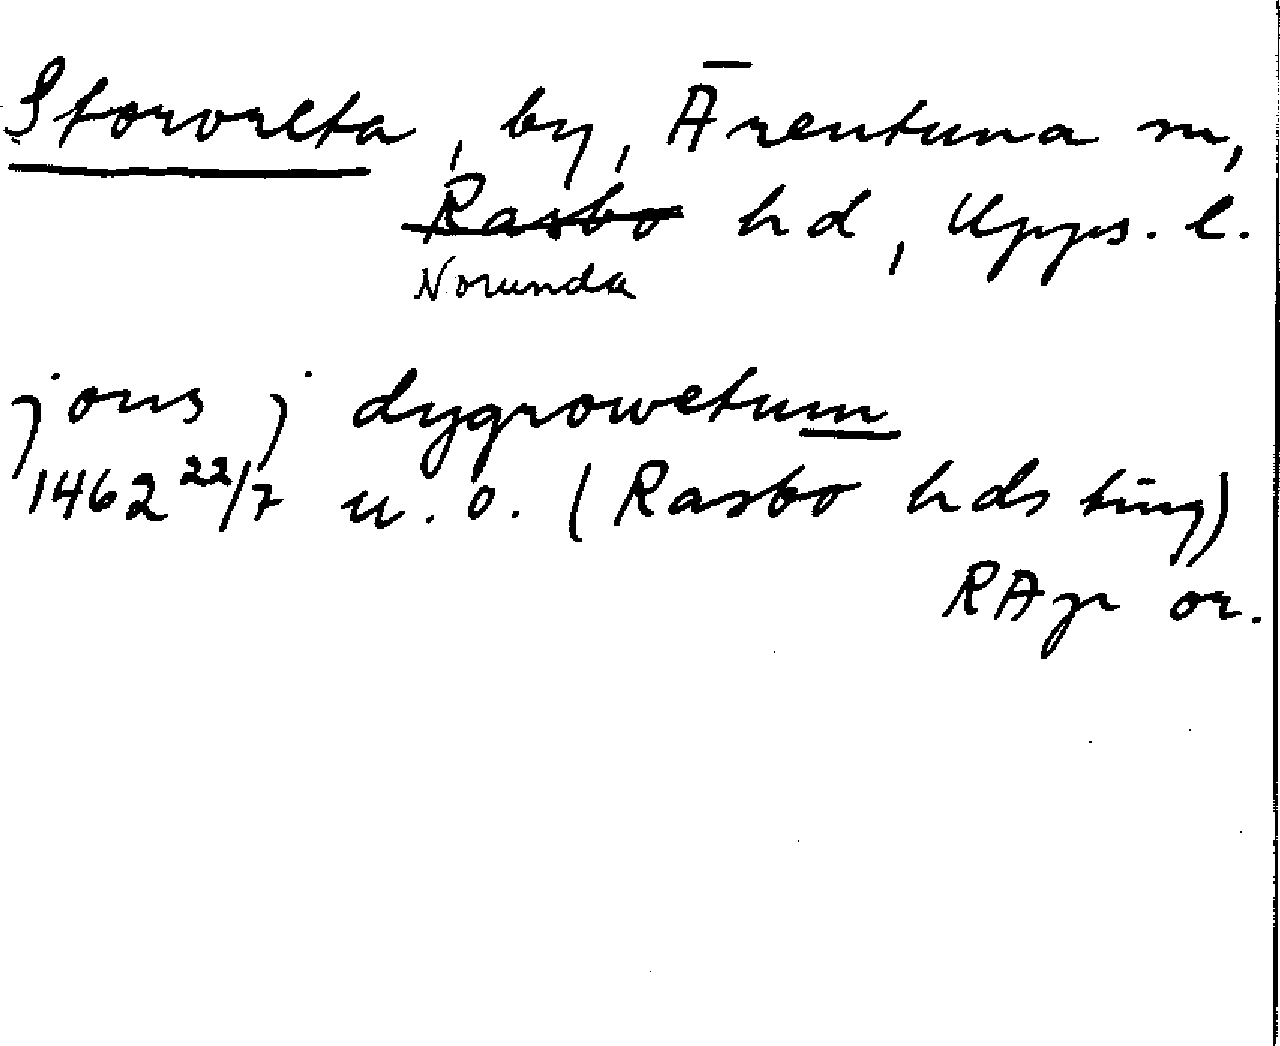 Storvreta, by, Ärentuna sn,
Rasbo hd, Upps. l.
Norunda
jons j dygrowetum
1462 22/7 u. o. (Rasbo hds ting)
RAp or.